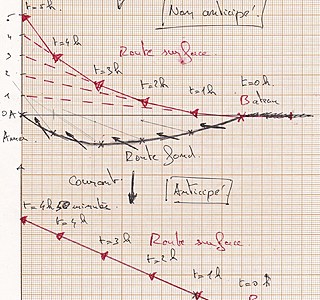 5 t=5h
Non anticipé!
4 t=4h
3 t=3h
Route surface
2 t=2h
1 t=1h
t=0h
Bateau
0A
Route fond.
Courant.
Anticipé!
t=4h50 minutes
t=4h
t=3h
Route surface
t=2h
t=1h
t=0h
B